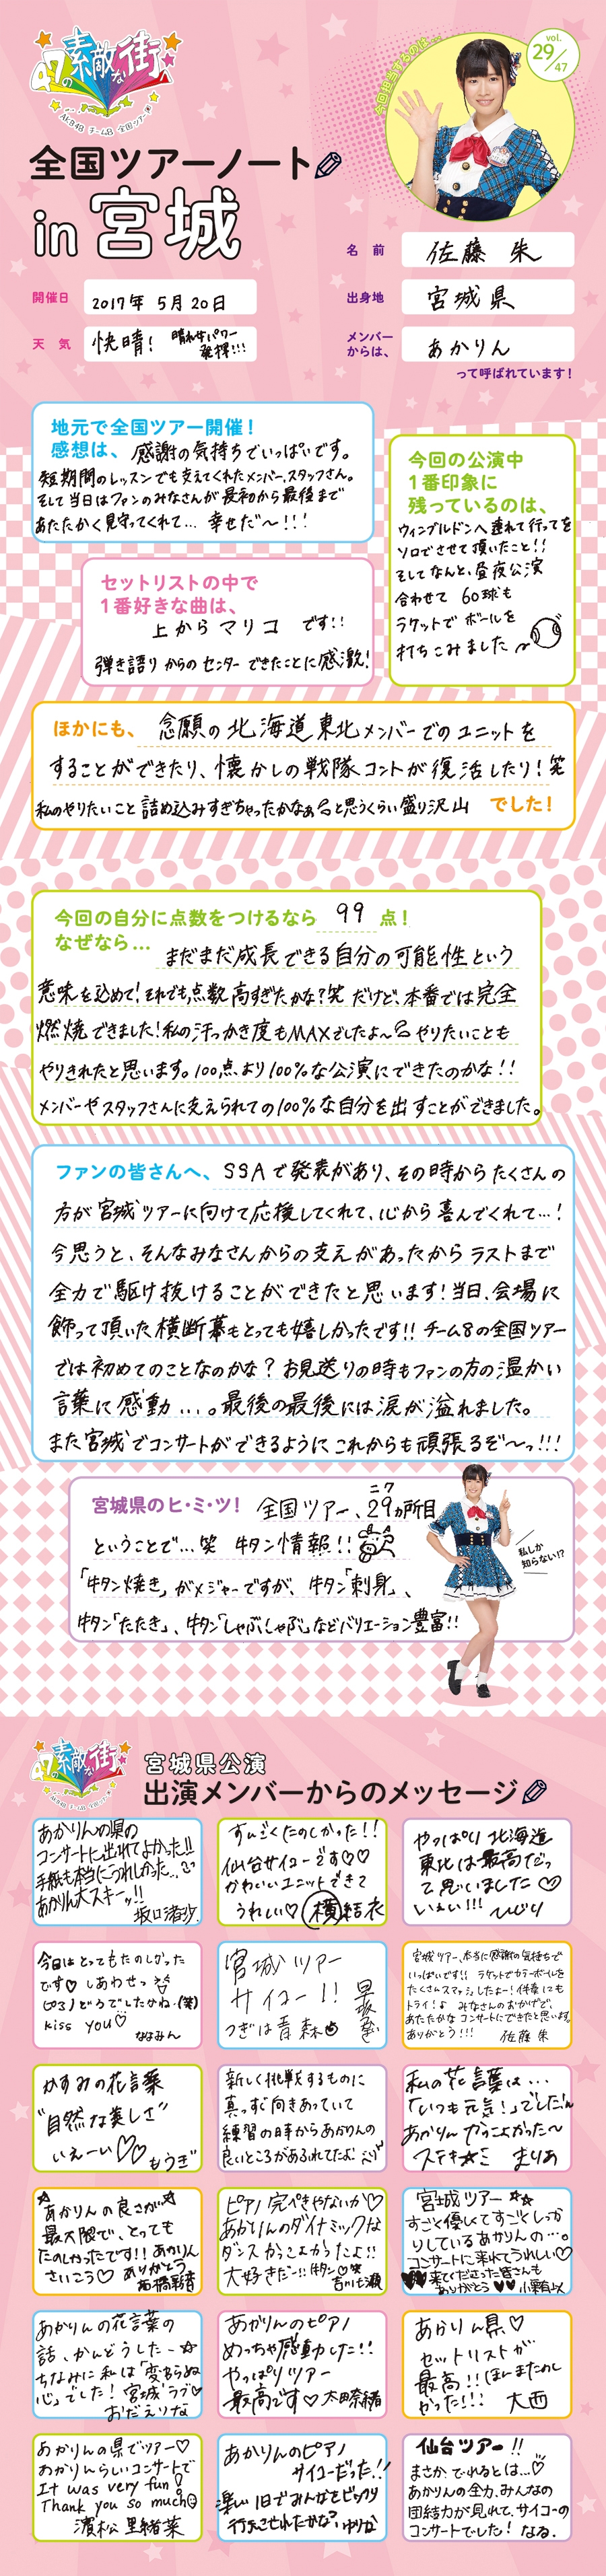 47の素敵な街
AKB48 チーム8 全国ツアー
今回担当するのは…
vol.
29/47
全国ツアーノート
in 宮城
名 前 佐藤 朱
開催日 2017年 5月 20日
出身地 宮城県
天 気 快晴! 晴れ女パワー
発揮!!!
メンバー
からは、 あかりん
って呼ばれています!
地元で全国ツアー開催!
感想は、感謝の気持ちでいっぱいです。
短期間のレッスンでも支えてくれたメンバー、スタッフさん。
そして当日はファンのみなさんが最初から最後まで
あたたかく見守ってくれて… 幸せだ〜!!!
今回の公演中
1番印象に
残っているのは、
ウィンブルドンへ連れて行ってを
ソロでさせて頂いたこと!!
そしてなんと、昼夜公演
合わせて 60球も
ラケットで ボールを
打ちこみました
セットリストの中で
1番好きな曲は、
上からマリコ です!!
弾き語り からの センター できたことに感激!
ほかにも、念願の北海道東北メンバーでのユニットを
することができたり、懐かしの戦隊コントが復活したり!笑
私のやりたいこと詰め込みすぎちゃったかなぁと思うくらい盛り沢山 でした!
今回の自分に点数をつけるなら 99 点!
なぜなら… まだまだ成長できる自分の可能性という
意味を込めて!それでも点数高すぎたかな?笑 だけど、本番では完全
燃焼できました!私の汗っかき度もMAXでしたよ〜 やりたいことも
やりきれたと思います。100点より100%な公演にできたのかな!!
メンバーやスタッフさんに支えられての100%な自分を出すことができました。
ファンの皆さんへ、SSAで発表があり、その時からたくさんの
方が宮城ツアーに向けて応援してくれて、心から喜んでくれて…!
今思うと、そんなみなさんからの支えがあったからラストまで
全力で駆け抜けることができたと思います!当日、会場に
飾って頂いた横断幕もとっても嬉しかったです!! チーム8の全国ツアー
では初めてのことなのかな? お見送りの時もファンの方の温かい
言葉に感動…。最後の最後には涙が溢れました。
また宮城でコンサートができるようにこれからも頑張るぞ〜っ!!!
宮城県のヒ・ミ・ツ! 全国ツアー、29ヵ所目
ニク
ということで…笑 牛タン情報!!
「牛タン焼き」がメジャーですが、牛タン「刺身」、
牛タン「たたき」、牛タン「しゃぶしゃぶ」などバリエーション豊富!!
私しか
知らない!?
47の素敵な街
宮城県公演
出演メンバーからのメッセージ
あかりんの県の
コンサートに出れてよかった!!
手紙も本当にうれしかった…
あかりん大スキーッ!!
坂口渚沙
すんごくたのしかった!!
仙台サイコーです♡♡
かわいいユニットできて
うれしい♡ 横 結衣
やっぱり北海道
東北は最高だっ
て思いました♡
いぇい!!! ひじり
今日はとってもたのしかった
です♡ しあわせっ
ピアノどうでしたかね(笑)
kiss you♡
ななみん
宮城ツアー
サイコー!!
つぎは青森
宮城ツアー、本当に感謝の気持ちで
いっぱいです!! ラケットでカラーボールを
たくさんスマッシュしたよー! 伴奏にも
トライ! みなさんのおかげで、
あたたかなコンサートにできたと思います。
ありがとう!!! 佐藤 朱
かすみの花言葉
"自然な美しさ"
いえーい♡♡ もうぎ
新しく挑戦するものに
真っすぐ向きあっていて
練習の時からあかりんの
良いところがあふれてたよ
私の花言葉は…
「いつも元気!」でした!
あかりんかっこよかった〜
ステキ まりあ
あかりんの良さが
最大限で、とっても
たのしかったです!! あかりん
さいこう♡ ありがとう
ピアノ完ぺきやないか♡
あかりんのダイナミックな
ダンスかっこよかったよ!!
大好きだー!! 牛タン♡笑
吉川七瀬
宮城ツアー☆★
すごく優しくてすごくしっか
りしているあかりんの…。
コンサートに来れてうれしい♡
来てくださった皆さんも
ありがとう♥♥ 小栗有以
あかりんの花言葉の
話、かんどうした〜☆
ちなみに私は「変わらぬ
心」でした! 宮城ラブ♡
おだえりな
あかりんのピアノ
めっちゃ感動した!!
やっぱりツアー
最高です♡ 太田奈緒
あかりん県♡
セットリストが
最高!! ほんまたのし
かった!!! 大西
あかりんの県でツアー♡
あかりんらしいコンサートで
It was very fun!
Thank you so much
濵松 里緒菜
あかりんのピアノ
サイコーだった!!
楽しい1日でみんなをビックリ
仙台ツアー!!
まさか、でれるとは…♡
あかりんの全力、みんなの
団結力が見れて、サイコーの
コンサートでした! なる.